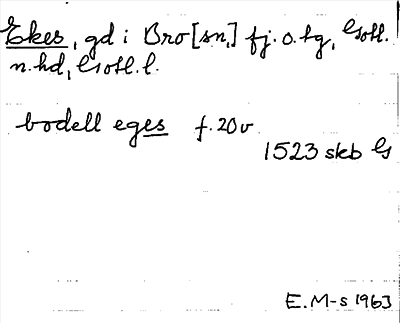 Ekes, gd i Bro [sn,] fj. o. tg, Gotl.
n. hd, Gotl. l.
bodell eges f. 20v
1523 skb G
E. M-s 1963